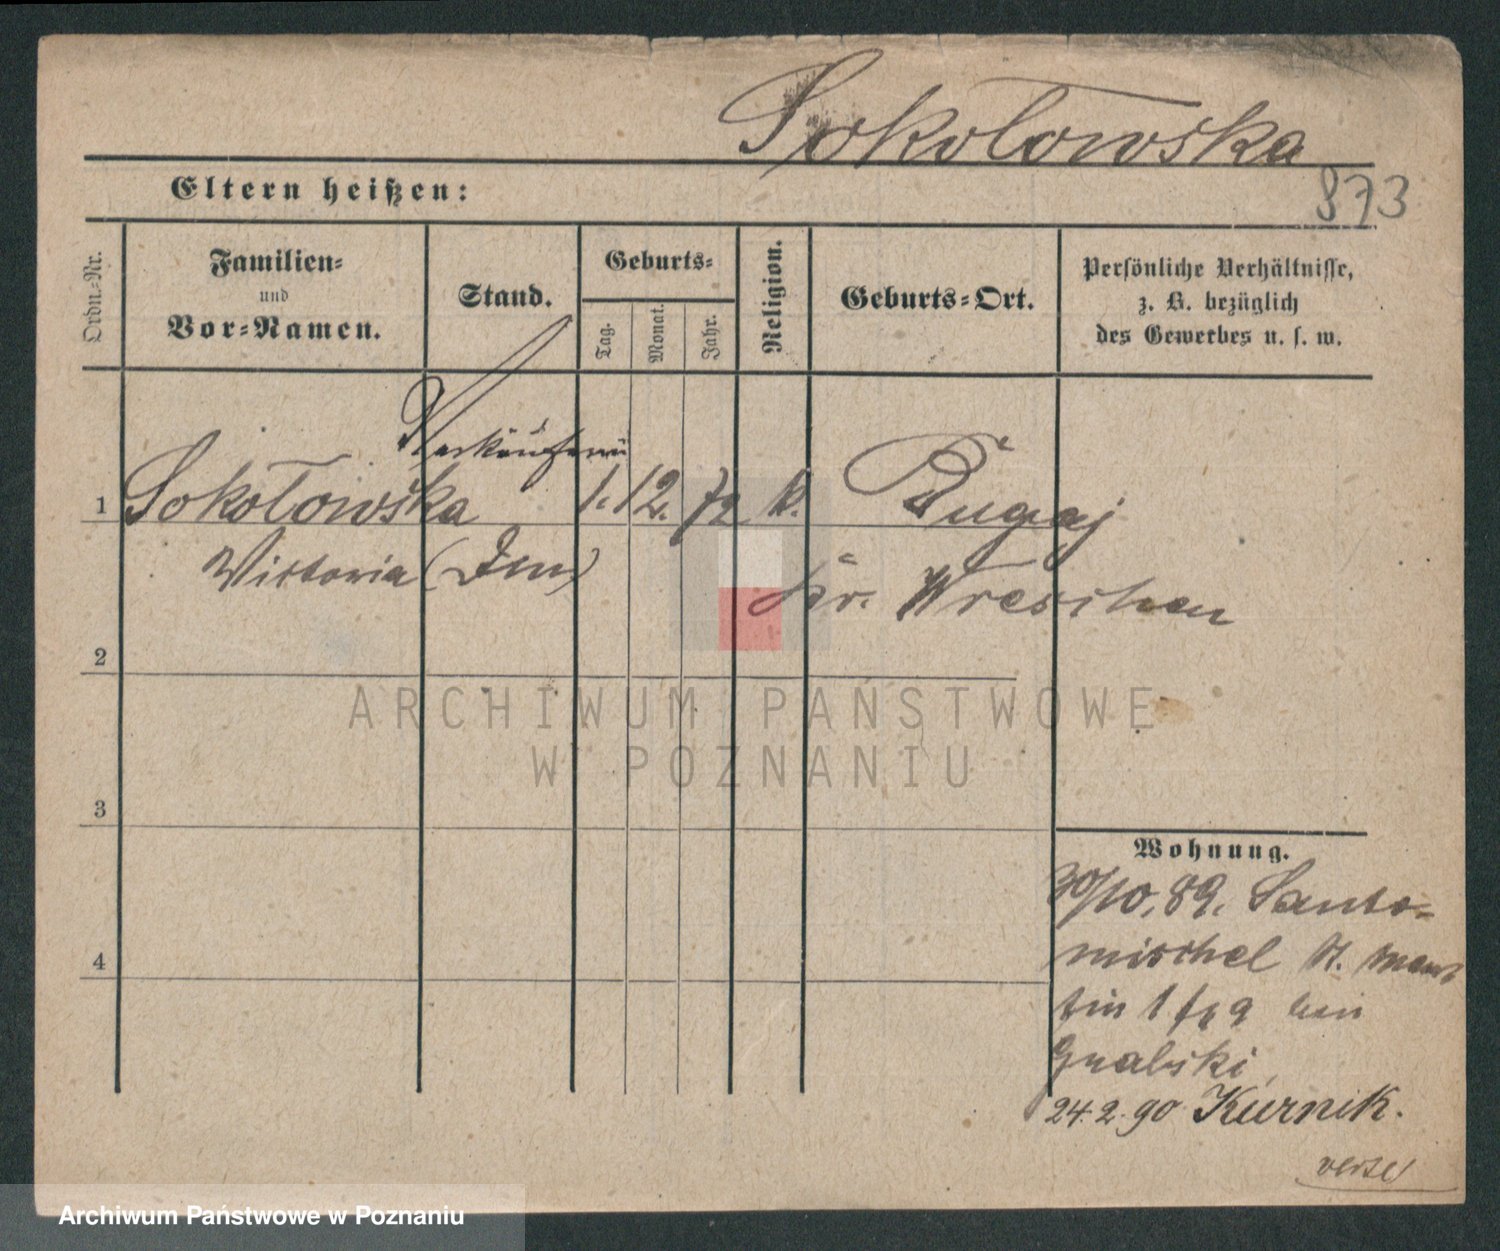 Sokołowska
873
Eltern heißen:
Ordn.-Nr.
Familien-
und
Vor-Namen.
Stand.
Geburts-
Tag.
Monat.
Jahr.
Religion.
Geburts-Ort.
Persönliche Verhältnisse,
z. B. bezüglich
des Gewerbes u. s. w.
Verkäuferin
1 Sokołowska 1. 12. 72 k. Pugaj
Victoria Kr. Wreschen
2
ARCHIWUM PAŃSTWOWE
W POZNANIU
3
Wohnung.
30/10. 89. Santo-
mischel St. Mar
tin 1 bei
Grabski
4
24.2.90 Kurnik.
verte
Archiwum Państwowe w Poznaniu